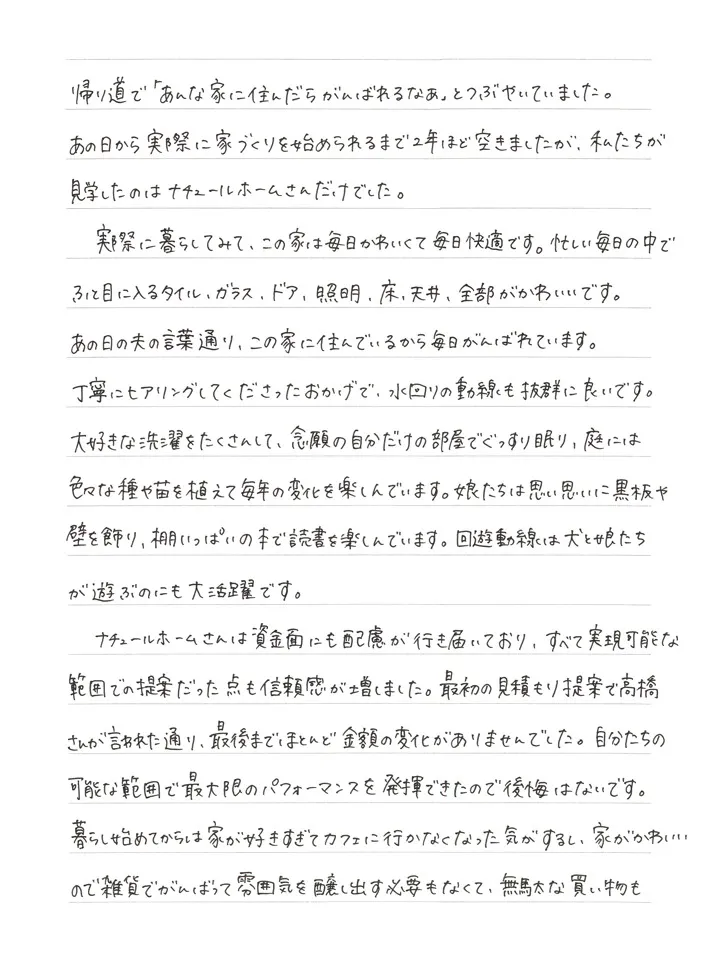 帰り道で「あんな家に住んだらがんばれるなぁ」とつぶやいていました。
あの日から実際に家づくりを始められるまで2年ほど空きましたが、私たちが
見学したのはナチュールホームさんだけでした。
実際に暮らしてみて、この家は毎日かわいくて毎日快適です。忙しい毎日の中で
ふと目に入るタイル、ガラス、ドア、照明、床、天井、全部がかわいいです。
あの日の夫の言葉通り、この家に住んでいるから毎日がんばれています。
丁寧にヒアリングしてくださったおかげで、水回りの動線も抜群に良いです。
大好きな洗濯をたくさんして、念願の自分だけの部屋でぐっすり眠り、庭には
色々な種や苗を植えて毎年の変化を楽しんでいます。娘たちは思い思いに黒板や
壁を飾り、棚いっぱいの本で読書を楽しんでいます。回遊動線は犬と娘たち
が遊ぶのにも大活躍です。
ナチュールホームさんは資金面にも配慮が行き届いており、すべて実現可能な
範囲での提案だった点も信頼感が増しました。最初の見積もり提案で高橋
さんが言われた通り、最後までほとんど金額の変化がありませんでした。自分たちの
可能な範囲で最大限のパフォーマンスを発揮できたので後悔はないです。
暮らし始めてからは家が好きすぎてカフェに行かなくなった気がするし、家がかわいい
ので雑貨でがんばって雰囲気を醸し出す必要もなくて、無駄な買い物も